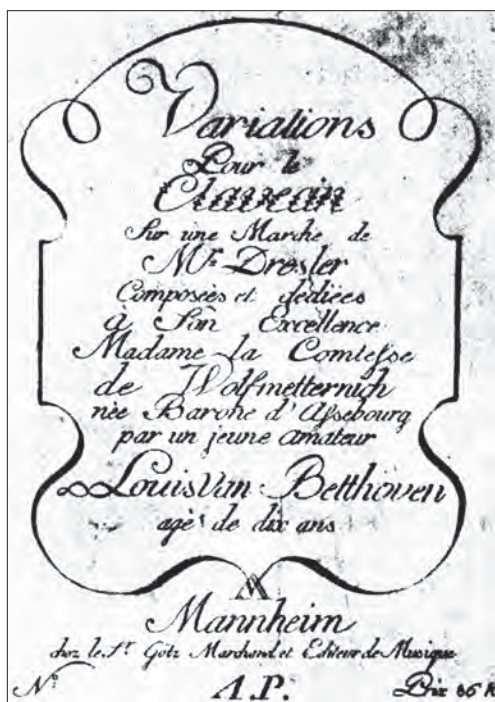 Variations
Pour le
Clavecin
Sur une Marche de
Mr. Dresler
Composées et dediées
à Son Excellence
Madame la Comtesse
de Wolfmetternich
née Barone d'Assebourg
par un jeune amateur
Louis van Betthoven
agé de dix ans
Mannheim
chez le Sr. Götz Marchand et Editeur de Musique
No. A.P. Prix